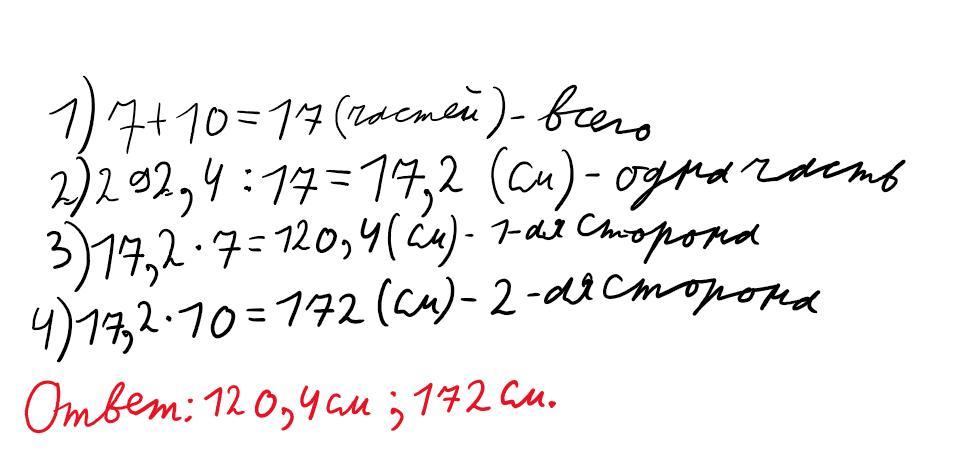 1) 7+10=17 (частей) - всего
2) 292,4 : 17 = 17,2 (см) - одна часть
3) 17,2 · 7 = 120,4 (см) - 1-ая сторона
4) 17,2 · 10 = 172 (см) - 2-ая сторона
Ответ: 120,4 см ; 172 см.